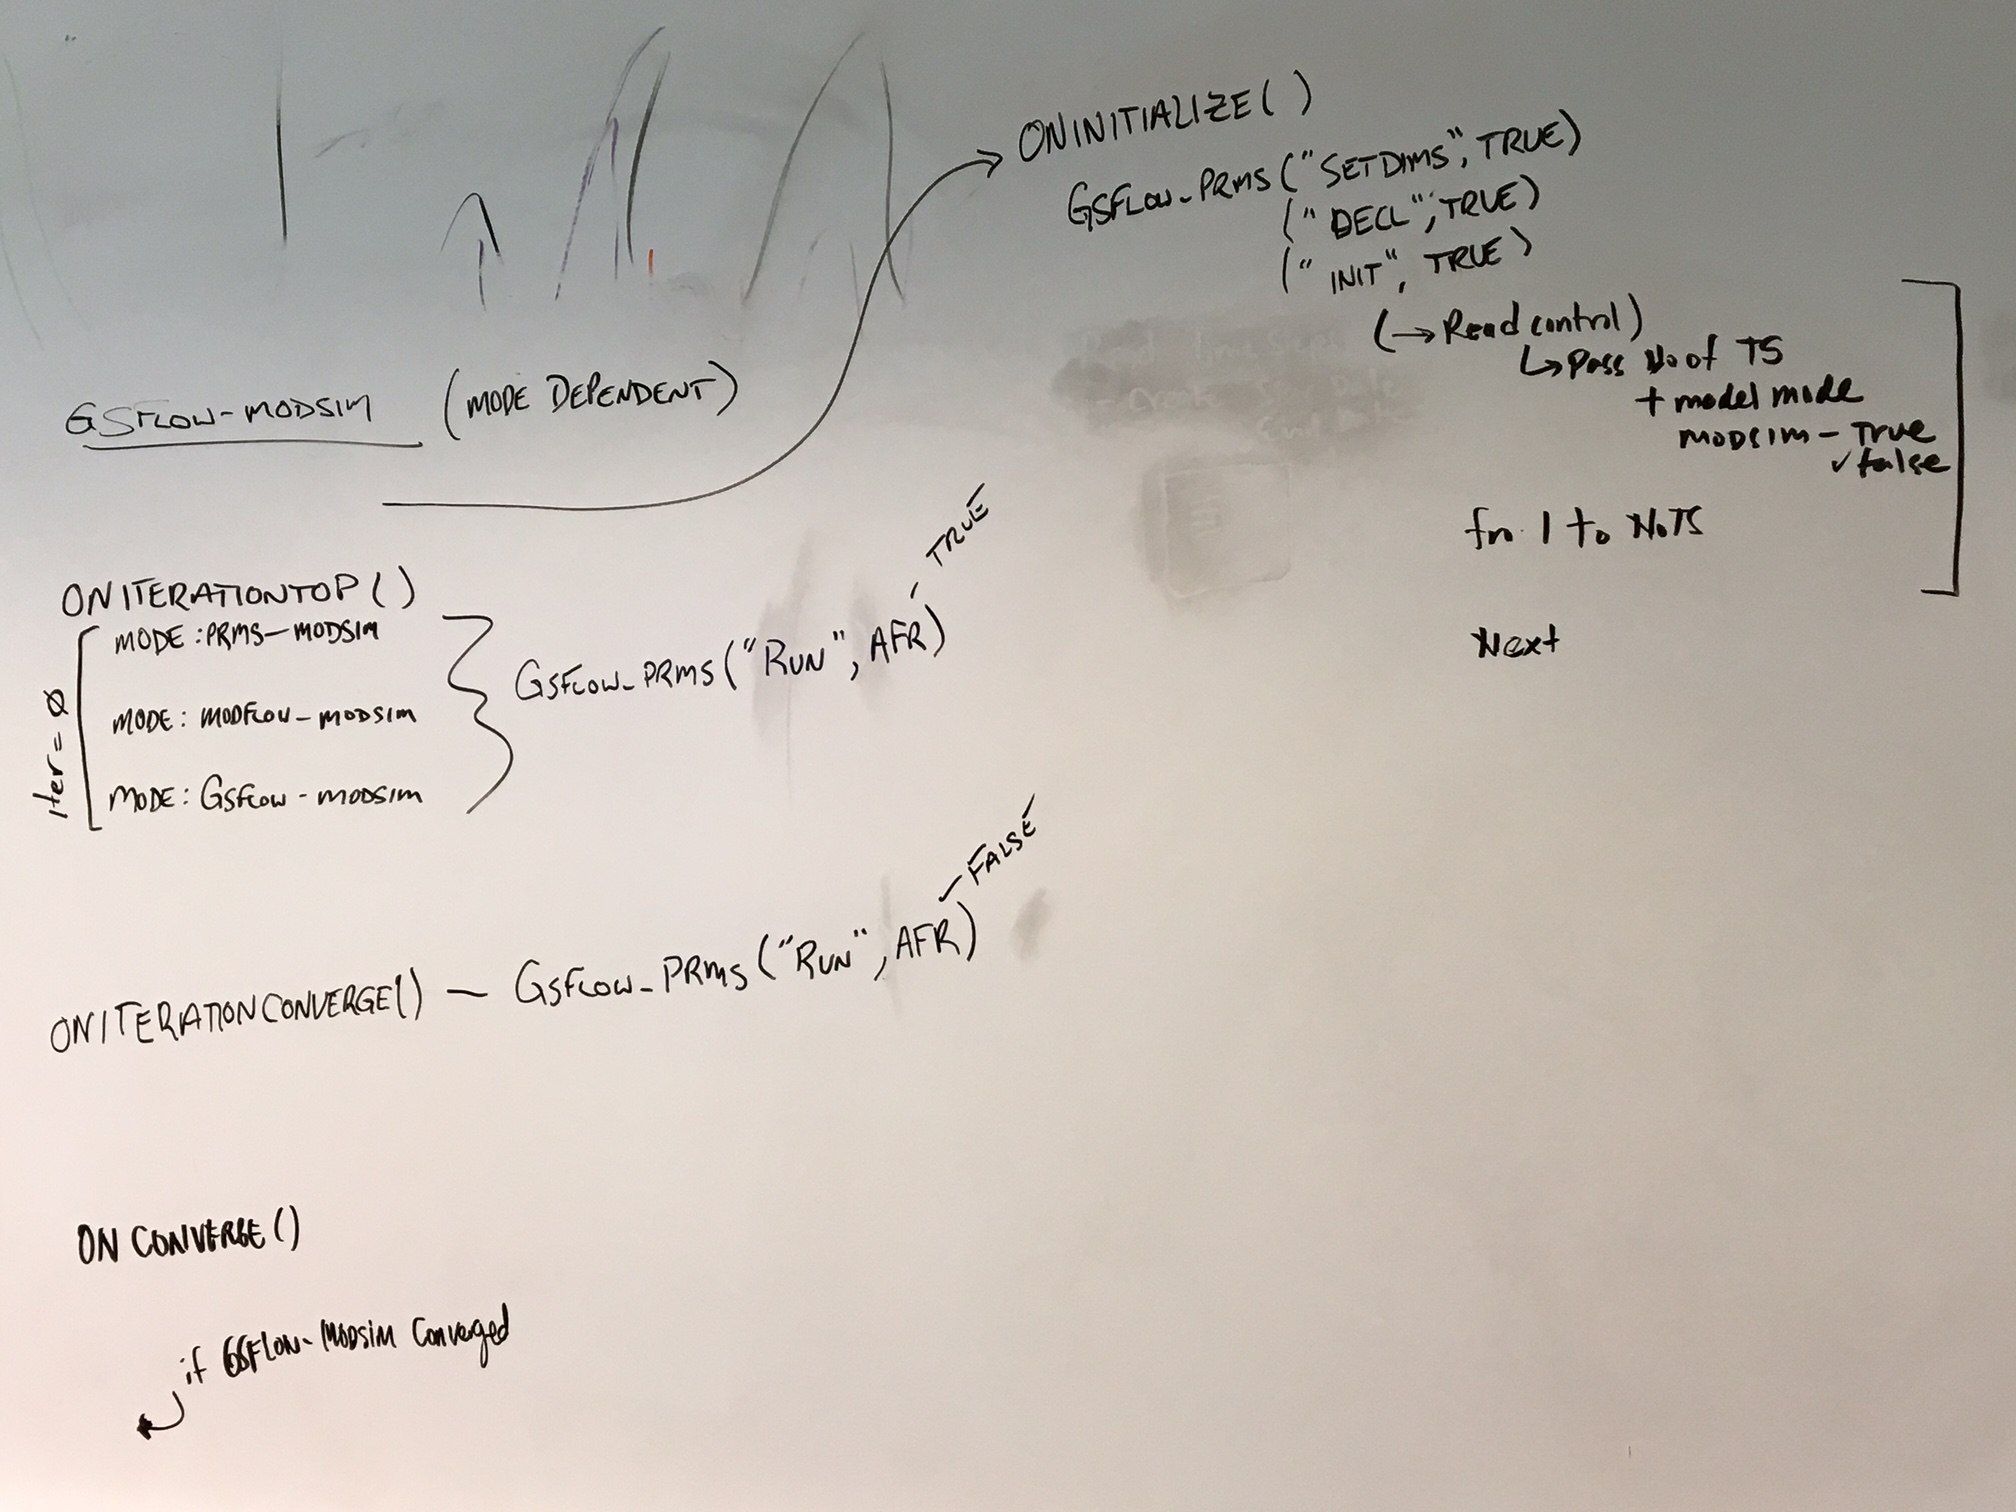 ONINITIALIZE( )
GSFLOW_PRMS ("SETDIMS", TRUE)
(" DECL", TRUE)
(" INIT", TRUE )
(→ Read control)
↳ Pass No of TS
+ model mode
MODSIM – True
✓ false
for 1 to NoTS
Next
GSFLOW-MODSIM (MODE DEPENDENT)
ONITERATIONTOP( )
iter = Ø
MODE : PRMS–MODSIM
MODE : MODFLOW–MODSIM
MODE : GSFLOW-MODSIM
GSFLOW_PRMS ("RUN", AFR)
– TRUE
ONITERATIONCONVERGE() — GSFLOW_PRMS ("RUN", AFR)
– FALSE
ON CONVERGE ()
if GSFLOW-MODSIM Converged